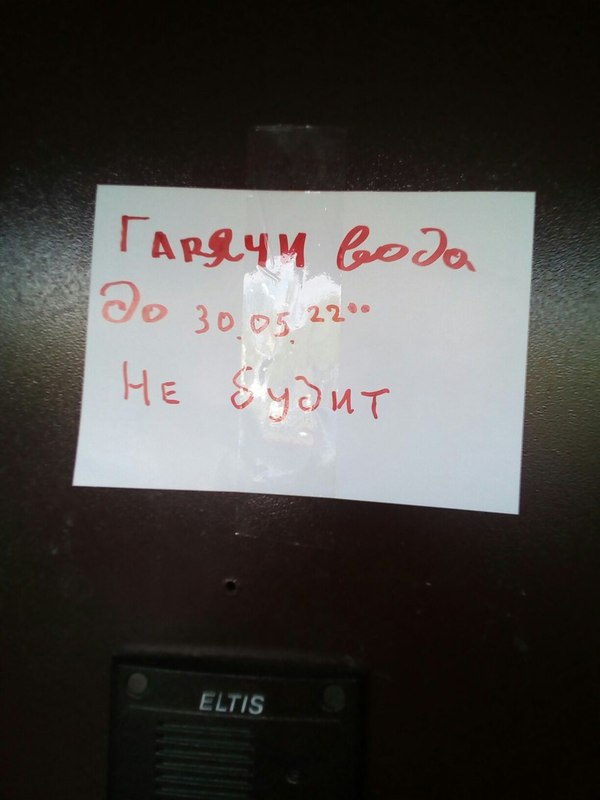 Гавячи вода
до 30.05.22°°
Не будит
ELTIS